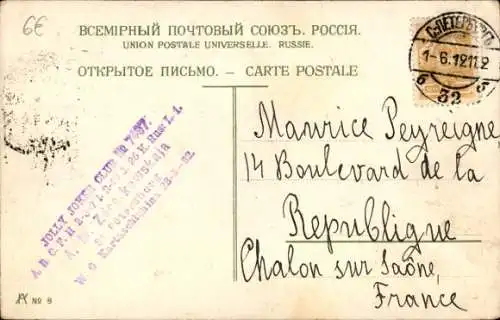 6€
ВСЕМІРНЫЙ ПОЧТОВЫЙ СОЮЗЪ. РОССІЯ.
UNION POSTALE UNIVERSELLE. RUSSIE.
ОТКРЫТОЕ ПИСЬМО. – CARTE POSTALE
С.ПЕТЕРБУРГЪ
1-6.12
32
JOLLY JOKER CLUB No 7437.
St. Petersbourg
W. O.
Maurice Peyreigne
14 Boulevard de la
Republique
Chalon sur Saône,
France
No 8